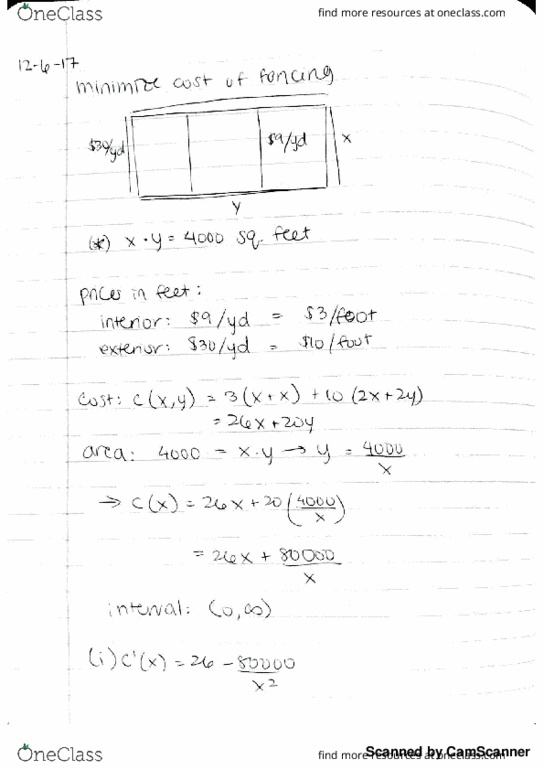 OneClass
find more resources at oneclass.com
12-6-17
minimize cost of fencing
$30/yd
$9/yd
x
y
(*) x · y = 4000 sq. feet
prices in feet:
interior: $9/yd = $3/foot
exterior: $30/yd = $10/foot
cost: C(x,y) = 3(x+x) + 10(2x+2y)
= 26x+20y
area: 4000 = x·y → y = 4000/x
⇒ C(x) = 26x + 20(4000/x)
= 26x + 80000/x
interval: (0,∞)
(i) C'(x) = 26 - 80000/x²
OneClass
find more resources at oneclass.com
Scanned by CamScanner